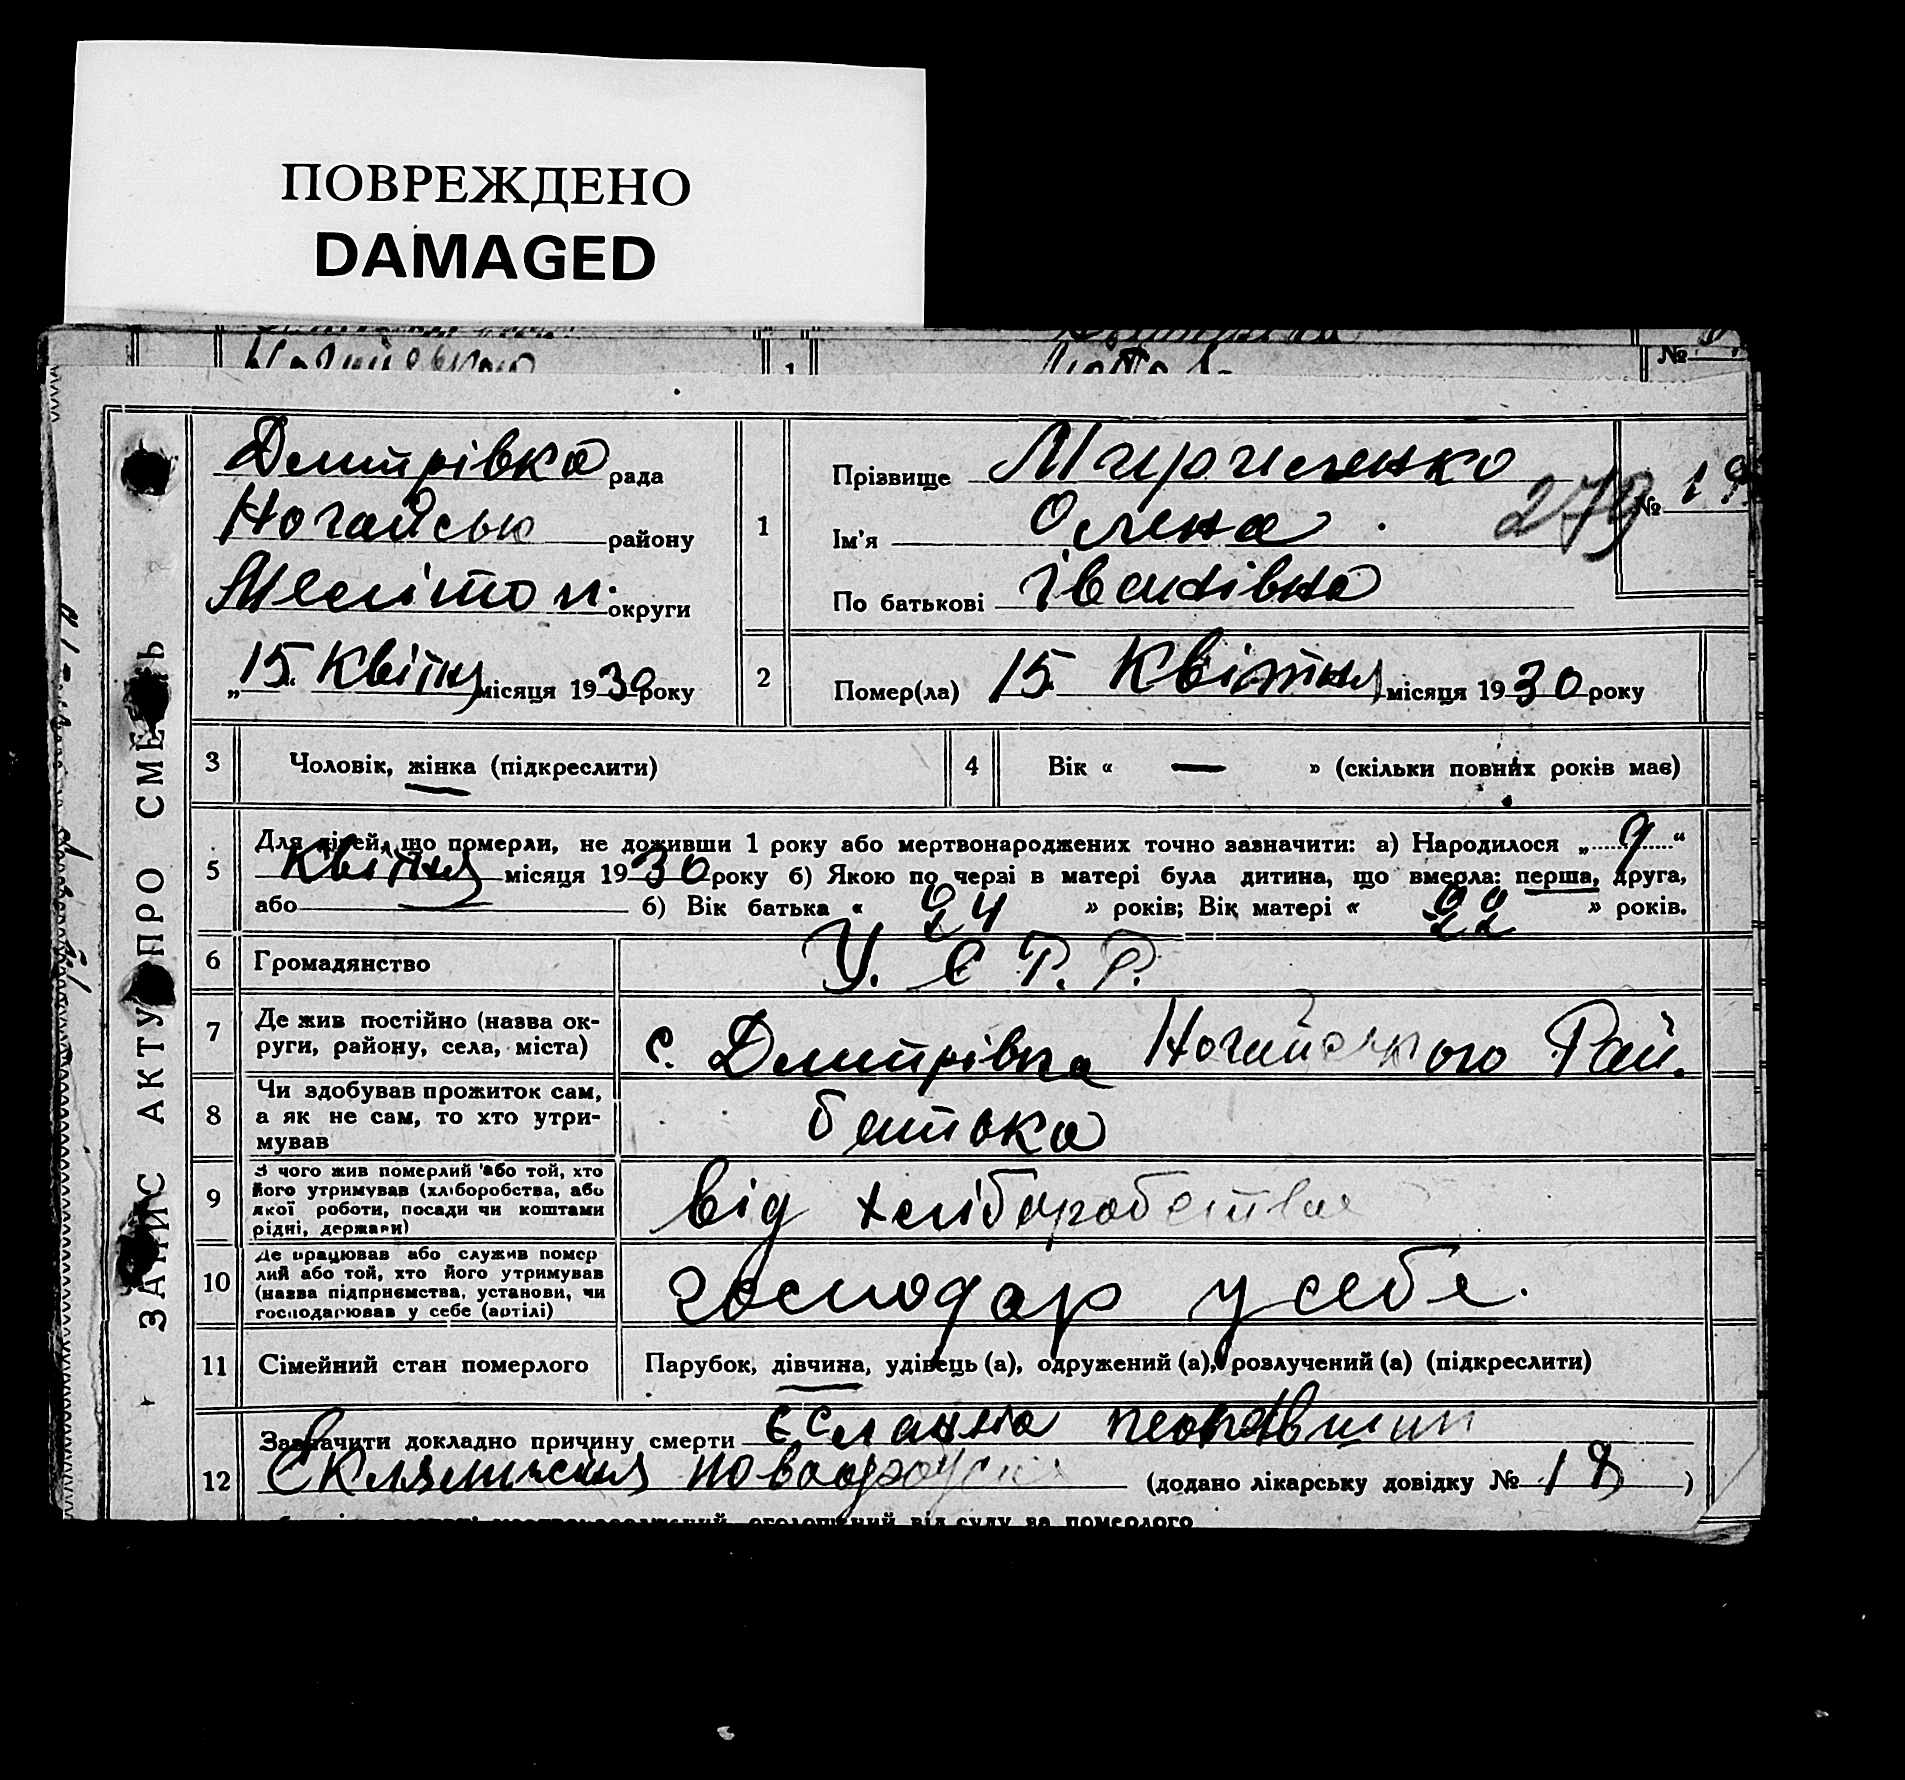 ПОВРЕЖДЕНО
DAMAGED
№
ЗАПИС АКТУ ПРО СМЕ Ь
Дмитрівка рада
Ногайськ району
Меліто п. округи
„15“ Квітня місяця 1930 року
1
Прізвище
Ім'я Олена
По батькові Іванівна
279
№ 19
2
Помер(ла) 15 Квітня місяця 1930 року
3
Чоловік, жінка (підкреслити)
4
Вік « — » (скільки повних років має)
5
Для дітей, що померли, не доживши 1 року або мертвонароджених точно зазначити: а) Народилося „9“
Квітня місяця 1930 року б) Якою по черзі в матері була дитина, що вмерла: перша, друга,
або — б) Вік батька « 24 » років; Вік матері « 22 » років.
6
Громадянство
У. С Р. Р.
7
Де жив постійно (назва ок-
руги, району, села, міста)
с. Дмитрівка Ногайського Рай.
8
Чи здобував прожиток сам,
а як не сам, то хто утри-
мував
батько
9
З чого жив померлий або той, хто
його утримував (хліборобства, або
якої роботи, посади чи коштами
рідні, держави)
від хліборобства
10
Де працював або служив помер
лий або той, хто його утримував
(назва підприємства, установи, чи
господарював у себе (артілі)
господар у себе.
11
Сімейний стан померлого
Парубок, дівчина, удівець (а), одружений (а), розлучений (а) (підкреслити)
12
Зазначити докладно причину смерти
(додано лікарську довідку № 18 )
оголошений від суду за померлого